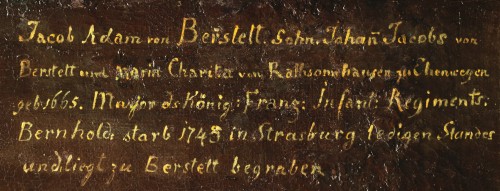 Jacob Adam von Berstett. Sohn. Johañ Jacobs von
Berstett und Maria Charita von Rathsomhausen zu Ehenwegen
geb: 1665. Mayor ds König: Franz: Infant: Regiments:
Bernhold: starb 1743 in Strasburg ledigen Standes
und liegt zu Berstett begraben